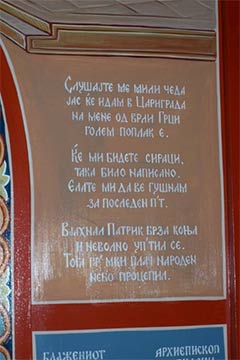 Слушајте ме мили чеда
јас ќе идам в Цариграда
на мене од врли Грци
голем поплак е.
Ќе ми бидете сираци,
така било написано.
Елате ми да ве гушнам
за последен п'т.
Вјахнал Патрик брза коња
и неволно уп'тил се.
Тога гр'мки плач народен
небо процепил.
БЛАЖЕНИОТ
АРХИЕПИСКОП